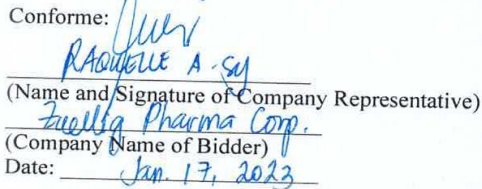 Conforme:
RAQUELLE A. SY
(Name and Signature of Company Representative)
Zuellig Pharma Corp.
(Company Name of Bidder)
Date: Jan. 17, 2023